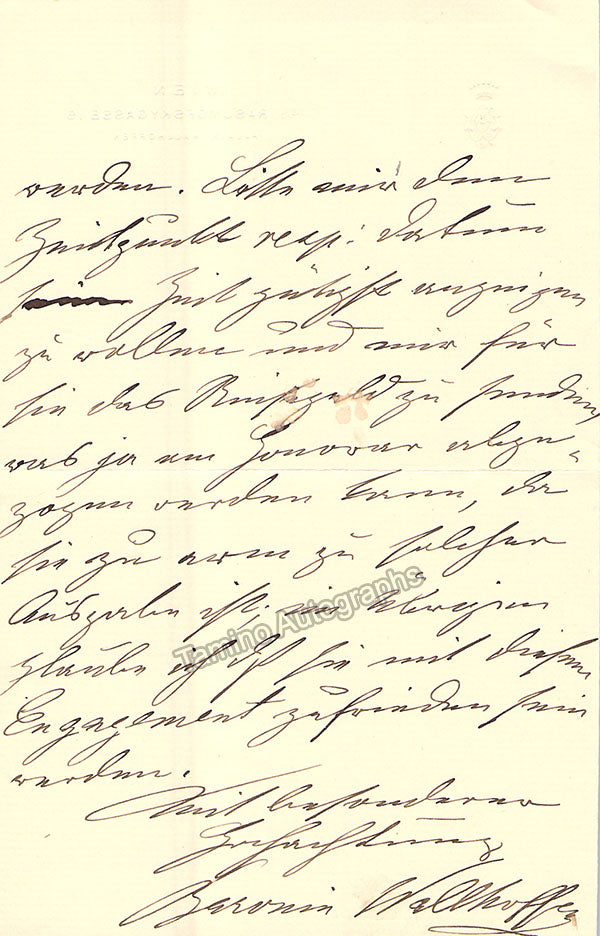 werden. Bitte mir den
Zeitpunkt resp: Datum
Zeit gütigst anzeigen
zu wollen und mir für
sie das Reisegeld zu senden,
was ja am Honorar abge-
zogen werden kann, da
sie zu arm zu solcher
Ausgabe ist. im Übrigen
glaube ich daß sie mit diesem
Engagement zufrieden sein
werden.
Mit besonderer
Hochachtung
Baronin Wallhoffen
Tamino Autographs